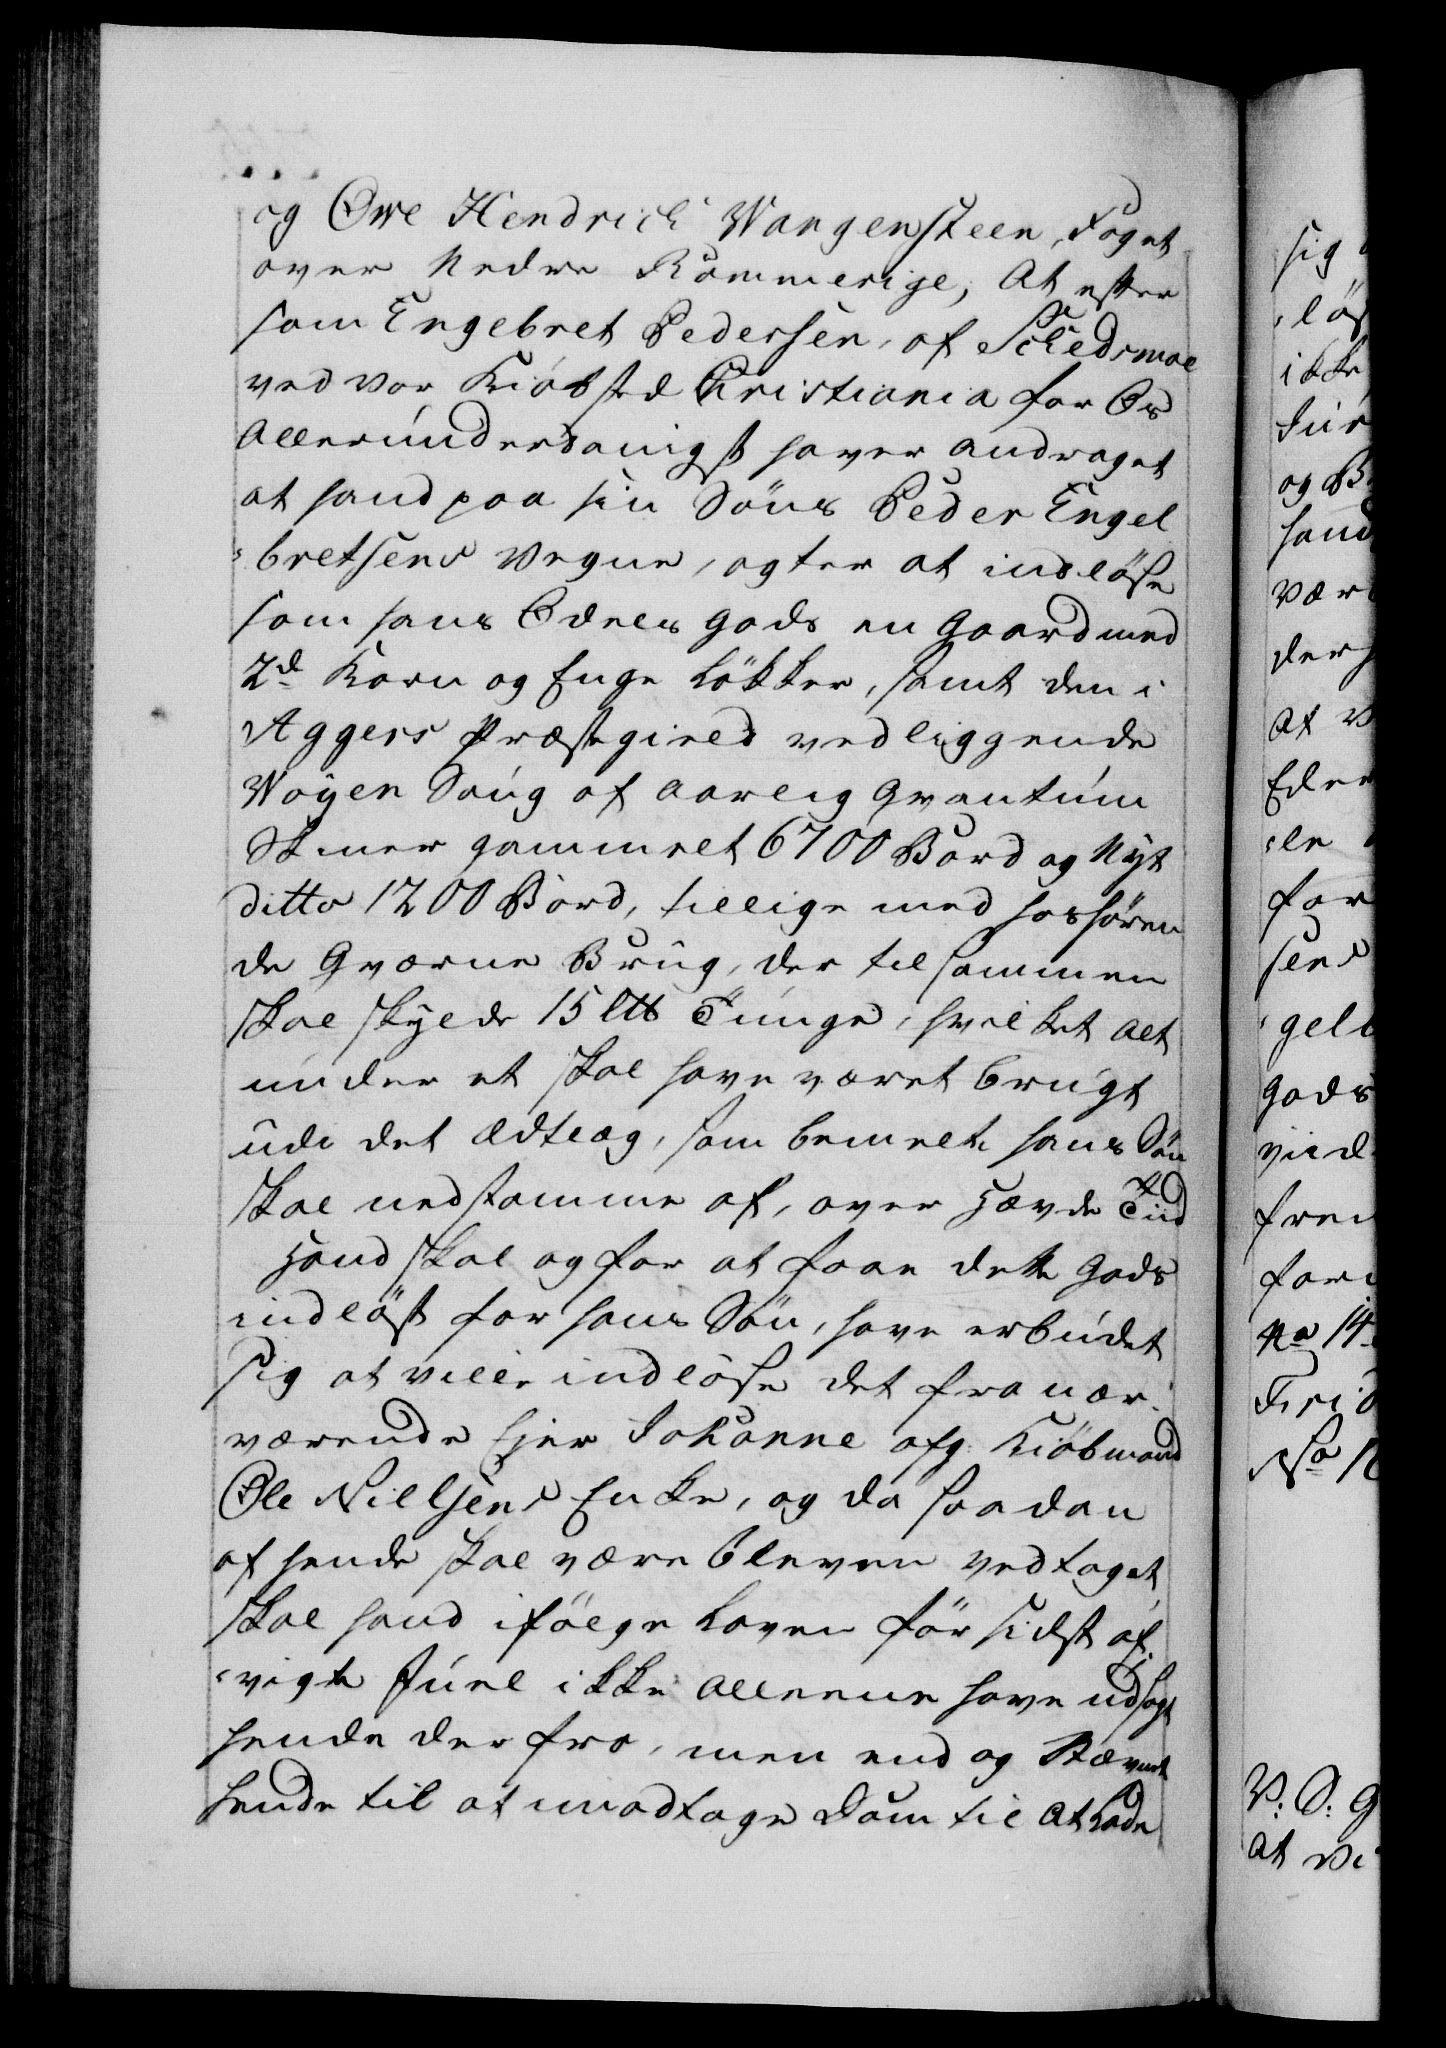 og Owe Hendrich Wangensteen, Foget
over Nedre Rommerige, At efter
som Engebret Pedersen, af Schedsmoe
ved vor Kiöbsted Christiania for Os
allerunderdanigst haver andraget
at hand paa sin Söns Peder Engel
-bretsens Vegne, agter at indlöse
som hans Odels Gods en Gaard med
2de Korn og Enge Løkker, samt den i
Aggers Præstegield vedliggende
Wøyen Saug af aarlig Qvantum
Skiuer gammelt 6700 Bord og Nyt
ditto 1200 Bord, tillige med hoshören
de Qværne Brug, der tilsammen
skal skylde 15 Ltb Tunge, hvilket alt
under et skal have været brugt
udi det Ædtlæg, som bemelte hans Sön
skal nedstamme af, over Hævds Tiid
Hand skal og for at faae dette Gods
indlöst for hans Sön, have erbudet
sig at ville indlöse det fra nær-
værende Ejer Johanne afg. Kiöbmand
Ole Nielsens Enke, og da saadan
af hende skal være bleven vedtaget
skal hand ifölge Loven för sidst af-
-vigte Juul ikke alleene have udsagt
hende derfra, men end og Stævnt
hende til at imodtage Dom til at Lade
sig
löse
ikke
Jur
og B
hand
vær
der
at V
Eder
-le
for
sens
gelb
Gods
viid
frem
for
No 14
Frid
No 1
V: S: G
at Vi